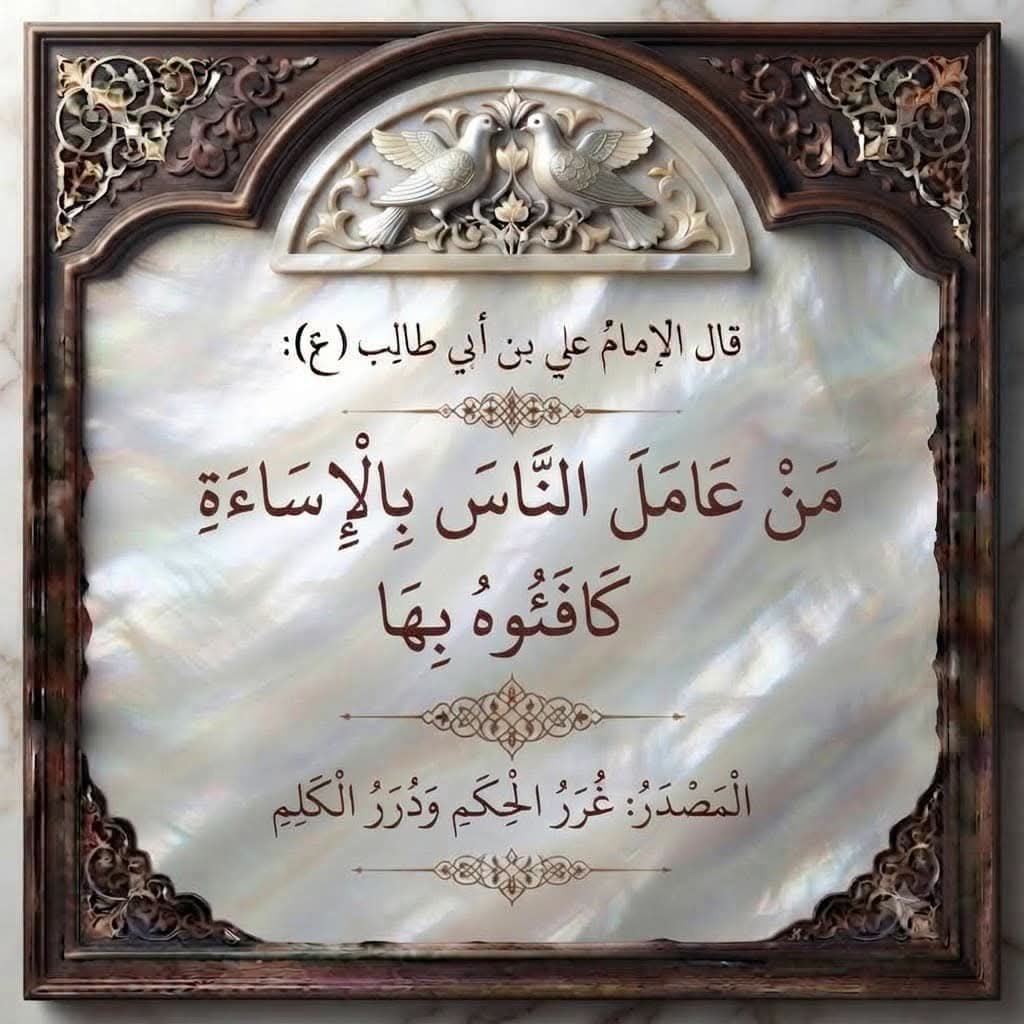 قال الإمامُ علي بن أبي طالِب (ع):
مَنْ عَامَلَ النَّاسَ بِالْإِسَاءَةِ
كَافَئُوهُ بِهَا
الْمَصْدَرُ: غُرَرُ الْحِكَمِ وَدُرَرُ الْكَلِمِ